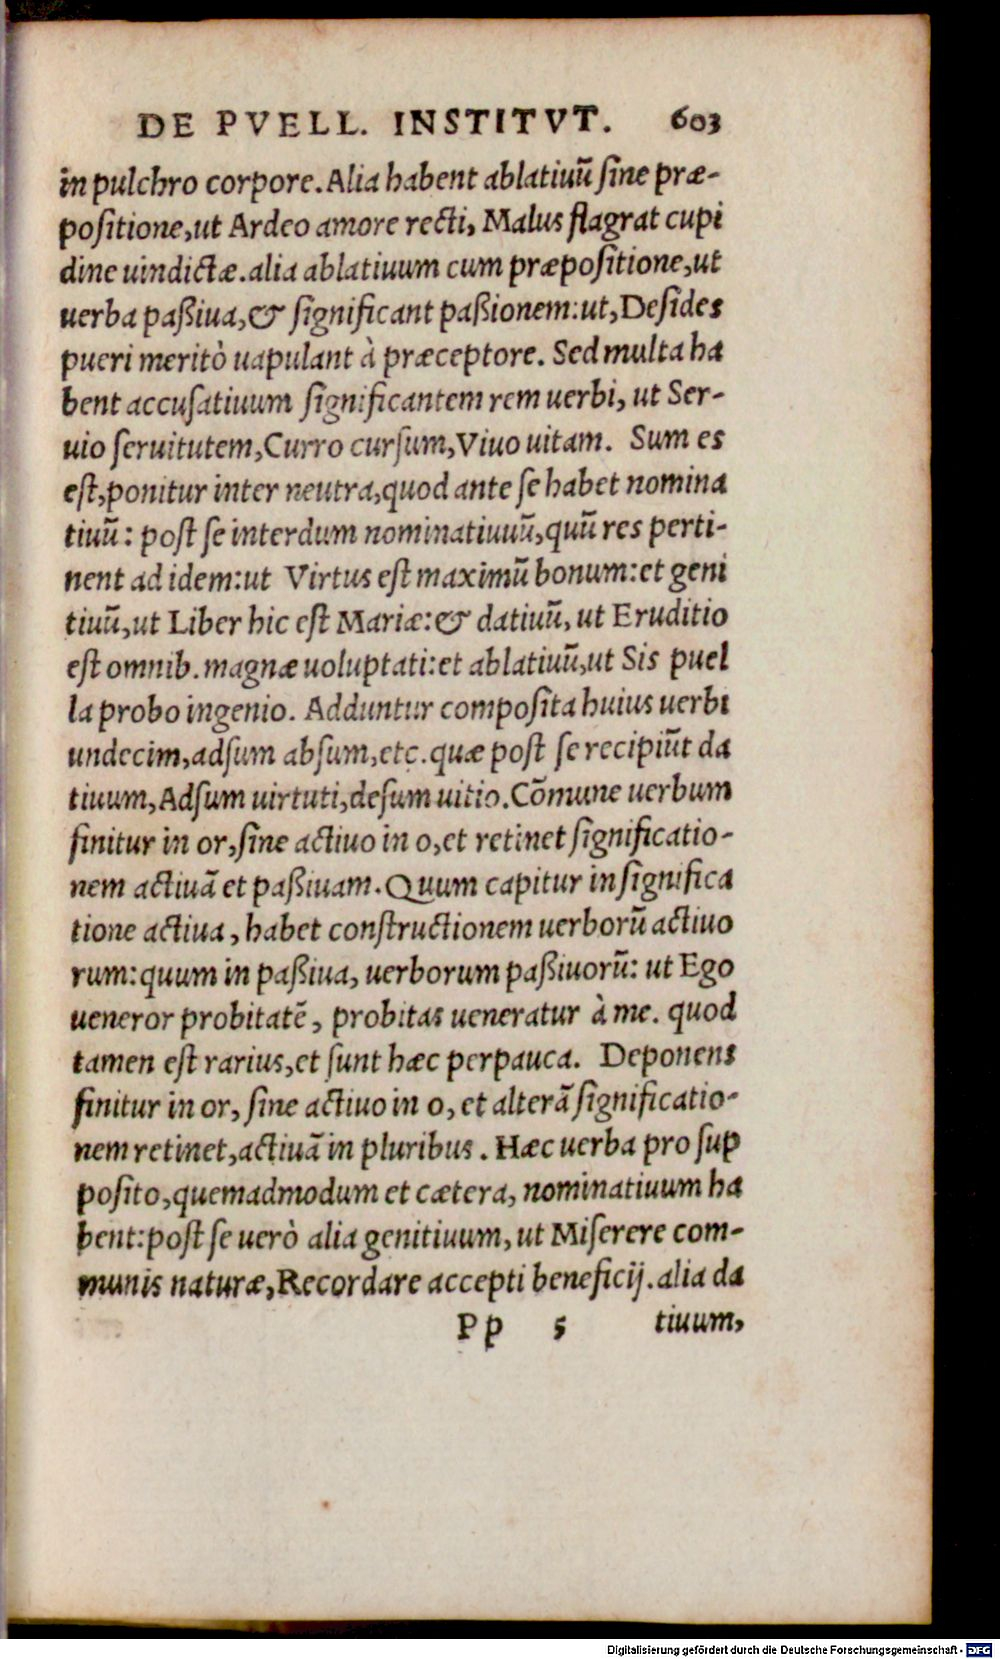 DE PVELL. INSTITVT. 603
in pulchro corpore. Alia habent ablatiuũ sine præ-
positione, ut Ardeo amore recti, Malus flagrat cupi
dine uindictæ. alia ablatiuum cum præpositione, ut
uerba paßiua, & significant paßionem: ut, Desides
pueri meritò uapulant à præceptore. Sed multa ha
bent accusatiuum significantem rem uerbi, ut Ser-
uio seruitutem, Curro cursum, Viuo uitam. Sum es
est, ponitur inter neutra, quod ante se habet nomina
tiuũ: post se interdum nominatiuuũ, quũ res perti-
nent ad idem: ut Virtus est maximũ bonum: et geni
tiuũ, ut Liber hic est Mariæ: & datiuũ, ut Eruditio
est omnib. magnæ uoluptati: et ablatiuũ, ut Sis puel
la probo ingenio. Adduntur composita huius uerbi
undecim, adsum absum, etc. quæ post se recipiũt da
tiuum, Adsum uirtuti, desum uitio. Cõmune uerbum
finitur in or, sine actiuo in o, et retinet significatio-
nem actiuã et paßiuam. Quum capitur in significa
tione actiua, habet constructionem uerborũ actiuo
rum: quum in paßiua, uerborum paßiuorũ: ut Ego
ueneror probitatẽ, probitas ueneratur à me. quod
tamen est rarius, et sunt hæc perpauca. Deponens
finitur in or, sine actiuo in o, et alterã significatio-
nem retinet, actiuã in pluribus. Hæc uerba pro sup
posito, quemadmodum et cætera, nominatiuum ha
bent: post se uerò alia genitiuum, ut Miserere com-
munis naturæ, Recordare accepti beneficij. alia da
Pp 5 tiuum,
Digitalisierung gefördert durch die Deutsche Forschungsgemeinschaft - DFG